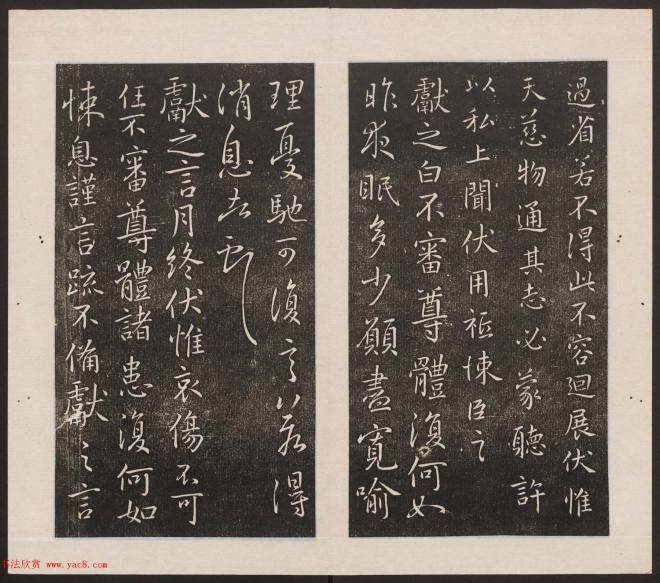 過省若不得此不容迴展伏惟
天慈物通其志必蒙聽許
以私上聞伏用祗悚臣之
獻之白不審尊體復何如
昨夜眠多少願盡寬喻
理憂馳可復言不得
消息告
獻之言月終伏惟哀傷不可
任不審尊體諸患復何如
悚息謹言疏不備獻之言
书法欣赏 www.yac8.com